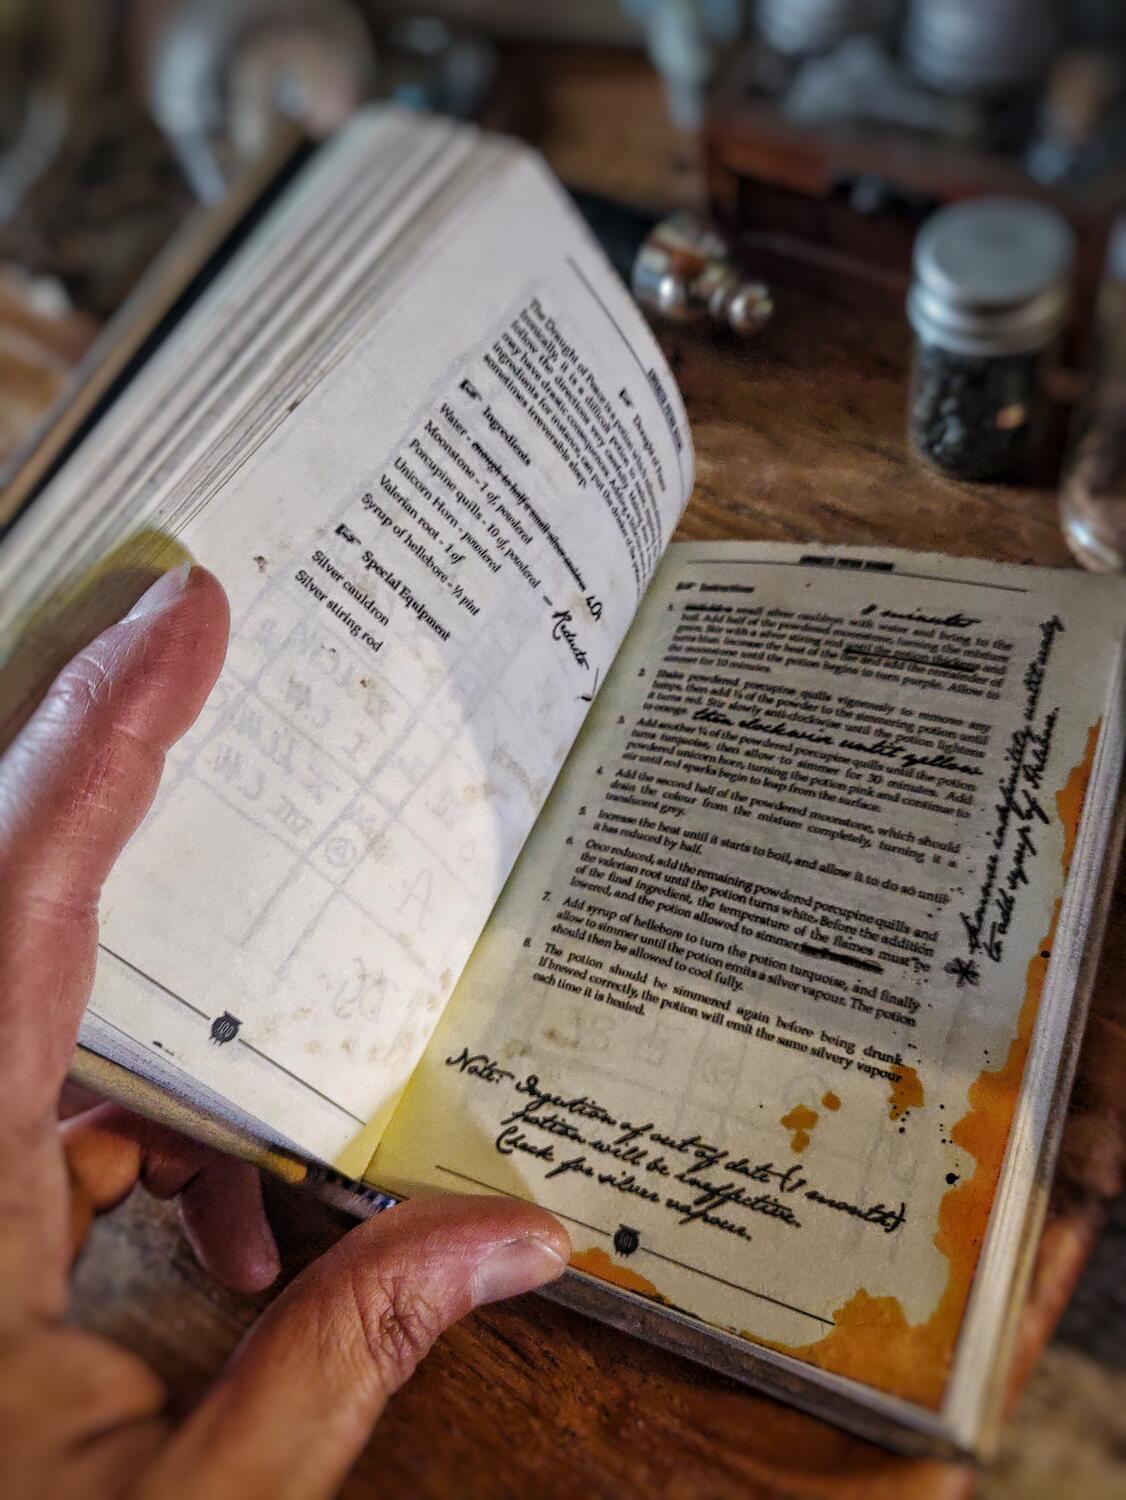 Draught of Peace
The Draught of Peace is a potion which
Ironically, it is a difficult potion to
follow the directions very carefully.
may have drastic consequences. Adding
ingredients for instance, can put the drinker
sometimes irreversible sleep.
Ingredients
Water - enough to half a small silver cauldron
Moonstone - 1 of, powdered
Porcupine quills - 10 of, powdered - Reduce
Unicorn Horn - powdered
Valerian root - 1 of
Syrup of hellebore - ½ pint
Special Equipment
Silver cauldron
Silver stiring rod
100
Instructions
8 minutes
1. small silver cauldron with water and bring to the
boil. Add half of the powdered moonstone, turning the mixture
Stir with a silver stiring rod until the potion thickens and
turns blue. Increase the heat of the fire and add the remainder of
the moonstone until the potion begins to turn purple. Allow to
simmer for 10 minutes.
2. Shake powdered porcupine quills vigorously to remove any
lumps, then add ¼ of the powder to the simmering potion until
it turns red. Stir slowly anti-clockwise until the potion lightens
to orange. then clockwise until yellow
3. Add another ¼ of the powdered porcupine quills until the potion
turns turquoise, then allow to simmer for 30 minutes. Add
powdered unicorn horn, turning the potion pink and continue to
stir until red sparks begin to leap from the surface.
4. Add the second half of the powdered moonstone, which should
drain the colour from the mixture completely, turning it a
translucent grey.
5. Increase the heat until it starts to boil, and allow it to do so until
it has reduced by half.
6. Once reduced, add the remaining powdered porcupine quills and
the valerian root until the potion turns white. Before the addition
of the final ingredient, the temperature of the flames must be
lowered, and the potion allowed to simmer
7. Add syrup of hellebore to turn the potion turquoise, and finally
allow to simmer until the potion emits a silver vapour. The potion
should then be allowed to cool fully.
8. The potion should be simmered again before being drunk.
If brewed correctly, the potion will emit the same silvery vapour
each time it is heated.
* Simmer indefinitely until ready
to add syrup of hellebore.
Note: Ingestion of out of date (1 month)
potion will be ineffective.
Check for silver vapour.
101